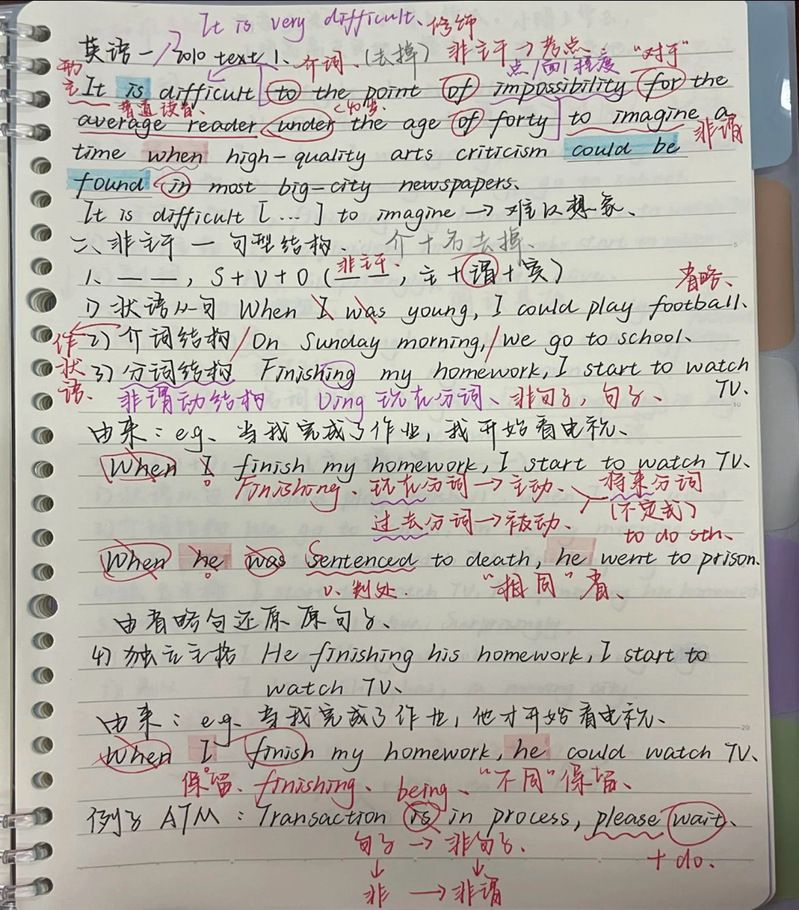 It is very difficult. 修饰
英语一/2010 text 1、介词、(去掉) 非主干→考点 "对于"
形主 点/面/程度
It is difficult to the point of impossibility for the
普通读者. <40岁.
average reader under the age of forty to imagine a
非谓
time when high-quality arts criticism could be
found in most big-city newspapers.
It is difficult [...] to imagine → 难以想象、
二、非主干一句型结构、 介+名去掉、
1、— —, S+V+O (非主干, 主+谓+宾)
省略、
1) 状语从句 When I was young, I could play football、
作状语、
2) 介词结构/On Sunday morning,/we go to school、
3) 分词结构 Finishing my homework, I start to watch
TV、
非谓动结构 Ving 现在分词、非句子, 句子、
由来: eg、当我完成了作业, 我开始看电视、
When I finish my homework, I start to watch TV、
Finishing 现在分词→主动、 将来分词
过去分词→被动、 (不定式)
to do sth、
When he was sentenced to death, he went to prison.
v. 判处 "相同"省、
由省略句还原原句子、
4) 独立主格 He finishing his homework, I start to
watch TV、
由来: eg、当我完成了作业, 他才开始看电视、
When I finish my homework, he could watch TV、
保留、finishing、being、"不同"保留、
例子 ATM: Transaction is in process, please wait、
句子→非句子、 +do、
↓ ↓
非→非谓